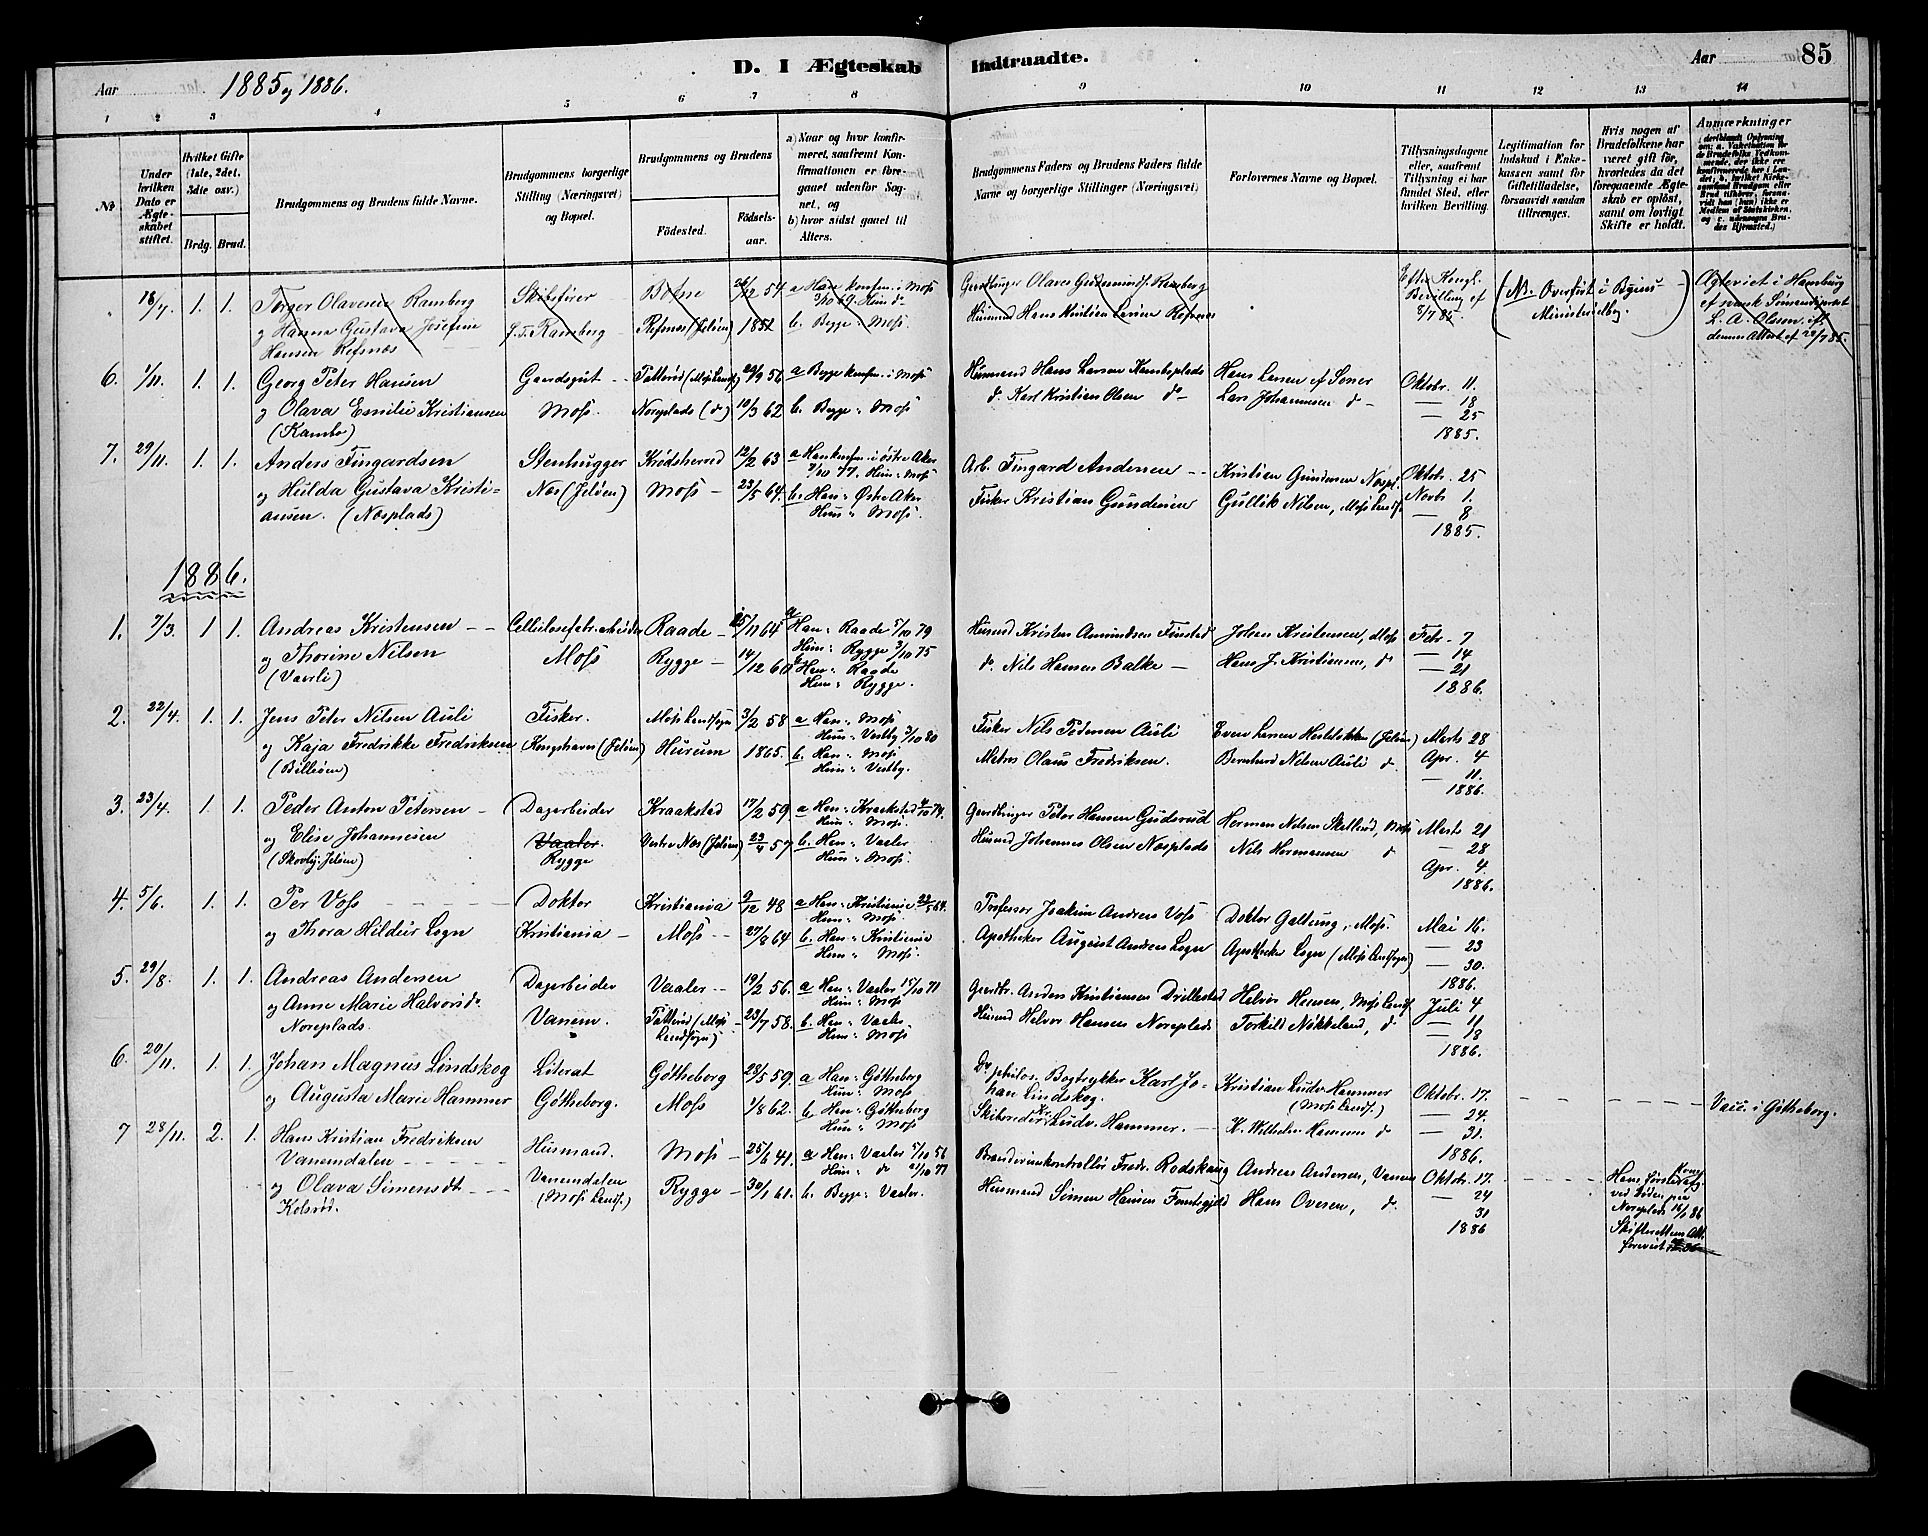 D. I Ægteskab Indtraadte.
Aar 1885 og 1886.
Aar 85
1 2 3 4 5 6 7 8 9 10 11 12 13 14
No
Under hvilken Dato er Ægteskabet stiftet.
Hvilket Gifte (1ste, 2det, 3die osv.)
Brdg. Brud.
Brudgommens og Brudens fulde Navne.
Brudgommens borgerlige Stilling (Næringsvei) og Bopæl.
Brudgommens og Brudens
Födested. Födselsaar.
a) Naar og hvor konfirmeret, saafremt Konfirmationen er foregaaet udenfor Sognet, og
b) hvor sidst gaaet til Alters.
Brudgommens Faders og Brudens Faders fulde Navne og borgerlige Stillinger (Næringsvei)
Forlovernes Navne og Bopæl.
Tillysningsdagene eller, saafremt Tillysning ei har fundet Sted, efter hvilken Bevilling.
Legitimation for Indskud i Enkekassen samt for Giftetilladelse, forsaavidt saadan tiltrænges.
Hvis nogen af Brudefolkene har været gift før, hvorledes da det foregaaende Ægteskab er opløst, samt om lovligt Skifte er holdt.
Anmærkninger
18/7. 1. 1. Torger Olavesen Ramberg Skibsfører Botne 26/12 54 a Han konfm. i Moss
og Hanna Gustava Josefine Hansen Refsnæs f. T. Ramberg Refsnes (Jeløen) 1852 b. Begge: Moss.
Gaardbruger Olaves Gudmunds. Ramberg
Husmand Hans Kristian Larsen Refsnæs
Efter Kongl. Bevilling af 8/7 85.
(NB. Overført i Byens Ministerialbog.)
Ægteviet i Hamburg af svensk Sømandspræst L. A. Olsson ifl. dennes Attest af 22/7 85.
6. 1/11. 1. 1. Georg Peter Hansen Gaardsgut Tatterød (Moss Landss.) 29/9 56 a Begge konfm. i Moss
og Olava Emilie Kristiansen Moss. Noreplads (do) 10/3 62 b. Begge: Moss
(Kambo)
Husmand Hans Larsen Kamboplads Hans Larsen af Soner Oktobr. 11.
do Karl Kristian Olsen do Lars Johannesen do — 18
— 25
1885.
7. 29/11. 1. 1. Anders Fingardsen Stenhugger Krødsherred 12/2 63 a Han konfm. i østre Aker 7/10 77. Hun: Moss
og Hulda Gustava Kristiansen. (Næsplads) Næs (Jeløen) Moss 23/5 64. b. Han: Østre Aker Hun: Moss.
Arb. Fingard Andersen Kristian Gundersen Næspl. Oktobr. 25
Fisker Kristian Gundersen Gullik Nilsen, Moss Landss. Novbr. 1.
— 8
1885.
1886.
1. 7/3. 1 1. Andreas Kristensen Cellulosefabr. arbeider Raade 25/11 64 a Han: Raade 5/10 79 Hun: Rygge 3/10 75
og Thorine Nilsen Moss Rygge 14/12 60 b Han: Raade Hun: Rygge.
(Vaarli)
Husmd Kristen Amundsen Finstad Johan Kristensen, Moss Febr. 7
do. Nils Hansen Balke Hans J. Kristiansen, do — 14
— 21
1886.
2. 22/4. 1. 1. Jens Peter Nilsen Auli Fisker. Moss Landsogn 3/2 58 a Han: Moss Hun: Vestby 3/10 80
og Kaja Fredrikke Fredriksen Kongshavn (Jeløen) Hurum 1865. b. Han: Moss Hun: Vestby.
(Billeøen)
Fisker Nils Pedersen Auli Even Larsen (Jeløen) Marts 28
Matros Olaus Fredriksen. Bernhard Nilsen Auli do. Apr. 4
— 11.
1886.
3. 23/4. 1. 1. Peder Anton Petersen Dagarbeider Kraakstad 17/2 59. a Han: Kraakstad 4/10 74. Hun: Moss.
og Elise Johannesen Vaaler. Rygge Vestre Næs (Jeløen) 23/4 57 b. Han: Vaaler Hun: Moss.
(Skovly, Jeløen)
Gaardbruger Peter Hansen Guderud Herman Nelsen Skallerød, Moss Marts 21
Husmd Johannes Olsen Næsplads Nils Hermansen do — 28
Apr. 4.
1886.
4. 5/6. 1. 1. Per Voss Doktor Kristiania 9/12 48 a Han: Kristiania 22/5 64. Hun: Moss
og Thora Hildur Logn Kristiania Moss 27/8 64 b. Han: Kristiania Hun: Moss.
Professor Joachim Andreas Voss Doktor Galtung, Moss. Mai 16.
Apotheker August Andreas Logn Apotheker Logn (Moss Landsogn) — 23
— 30.
1886.
5. 29/8. 1. 1. Andreas Andersen Dagarbeider Vaaler 19/2 56. a Han: Vaaler 15/10 71 Hun: Moss
og Anne Marie Halvorsdr Noreplads. Vanem. Tatterød (Moss Landsogn) 23/7 58. b. Han: Vaaler Hun: Moss
Gaardbr. Anders Kristiansen Drillestad Halvor Hansen, Moss Landss. Juli 4
Husmd Halvor Hansen Noreplads Torkild Nøkkeland, do — 11
— 18
1886.
6. 20/11. 1. 1. Johan Magnus Lindskog Literat Gøtheborg 28/5 59. a Han: Gøtheborg Hun: Moss
og Augusta Marie Hammer Gøtheborg. Moss 1/8 62. b. Han: Gøtheborg Hun: Moss
Dr philos. Bogtrykker Karl Johan Lindskog. Kristian Ludv. Hammer (Moss Landss.) Oktobr. 17.
Skibsreder Kr. Ludv. Hammer. K. Wilhelm Hansen do — 24.
— 31.
1886.
Vacc. i Gøtheborg.
7 28/11. 2. 1. Hans Kristian Fredriksen Vanemdalen Husmand. Moss 25/6 41. a Han: Vaaler 5/10 56 Hun: do 21/10 77
og Olava Simensdt Kolsrød. Vanemdalen (Moss Landss.) Rygge 30/1 61. b. Begge: Vaaler.
Brænderikontrollør Fredr. Rodskaug Andreas Andersen, Vanem Oktobr. 17.
Husmand Simen Hansen Hans Ovesen, do. — 24
31
1886
Hans første Kone afg. ved Døden paa Noreplads 16/1 86 Skifterettens Att. forevist